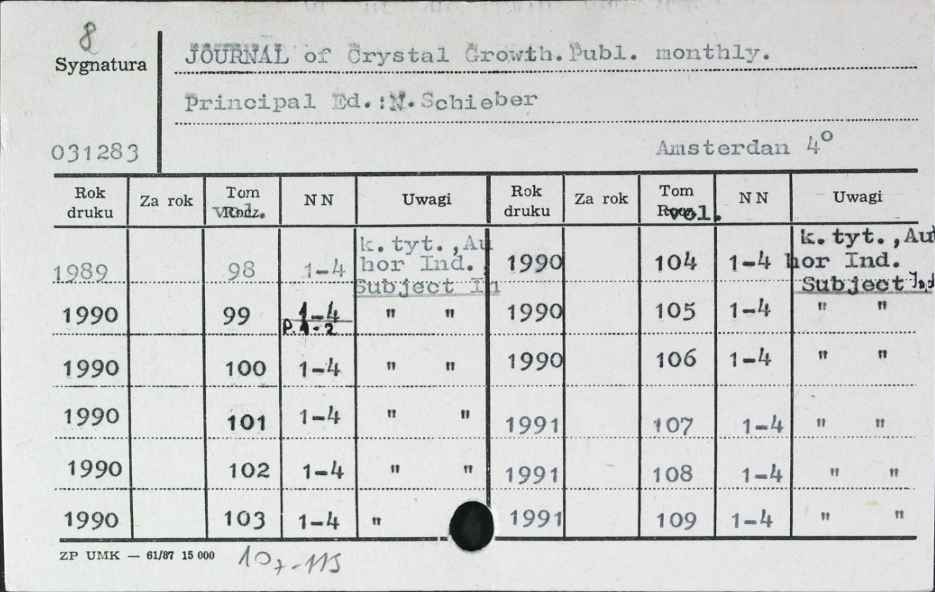 8
Sygnatura
JOURNAL of Crystal Growth. Publ. monthly.
Principal Ed.: N. Schieber
031283
Amsterdan 4º
Rok druku Za rok Tom vol. NN Uwagi Rok druku Za rok Tom vol. NN Uwagi
1989 98 1-4 k. tyt., Au hor Ind. Subject In 1990 104 1-4 k. tyt., Aut hor Ind. Subject Ind
1990 99 1-4 p. 1-2 " " 1990 105 1-4 " "
1990 100 1-4 " " 1990 106 1-4 " "
1990 101 1-4 " " 1991 107 1-4 " "
1990 102 1-4 " " 1991 108 1-4 " "
1990 103 1-4 " 1991 109 1-4 " "
ZP UMK — 61/87 15 000
107-115